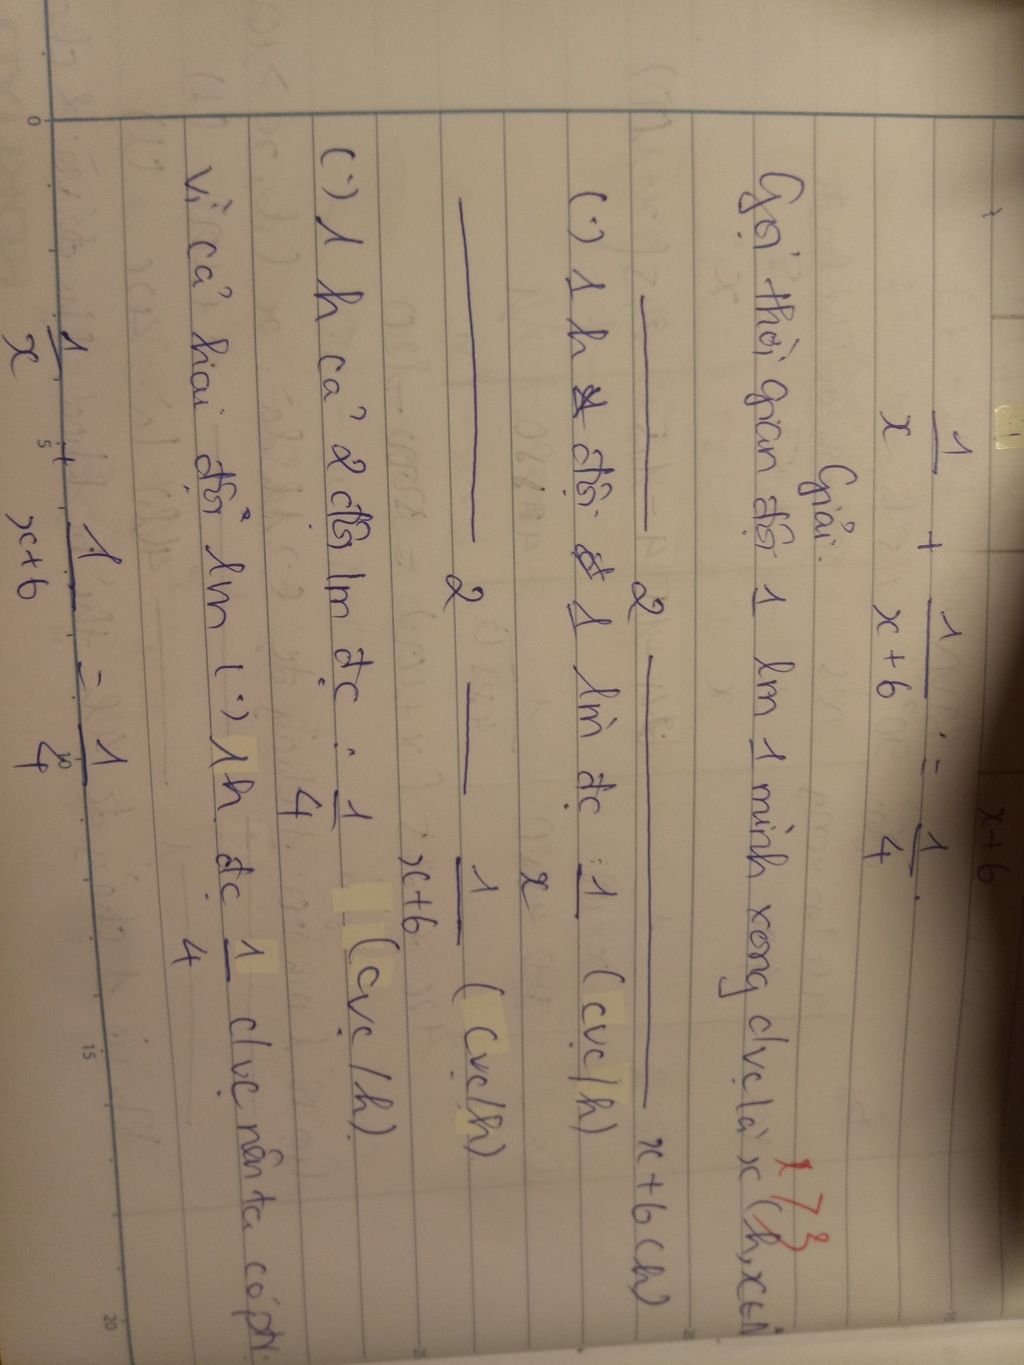 x+6
1/x + 1/(x+6) = 1/4.
Giải.
x > 3
Gọi thời gian đội 1 lm 1 mình xong cvc là x (h,
2 x+6 (h)
(.) 1 h đội 1 lm đc : 1/x (cvc/h)
2 1/(x+6) (cvc/h)
(.) 1 h cả 2 đội lm đc : 1/4 (cvc/h)
Vì cả hai đội lm (.) 1h đc 1/4 cvc nên ta có pt:
1/x + 1/(x+6) = 1/4
0 5 10 15 20